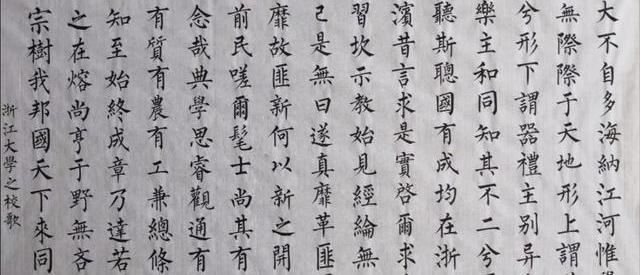 大不自多海納江河惟
無際際于天地形上謂
兮形下謂器禮主別異
樂主和同知其不二兮
聽斯聰國有成均在浙
濱昔言求是實啓爾求
習坎示教始見經綸無
己是無曰遂真靡革匪
靡故匪新何以新之開
前民嗟爾髦士尚其有
念哉典學思睿觀通有
有質有農有工兼總條
知至始終成章乃達若
之在熔尚亨于野無吝
宗樹我邦國天下來同
浙江大學之校歌